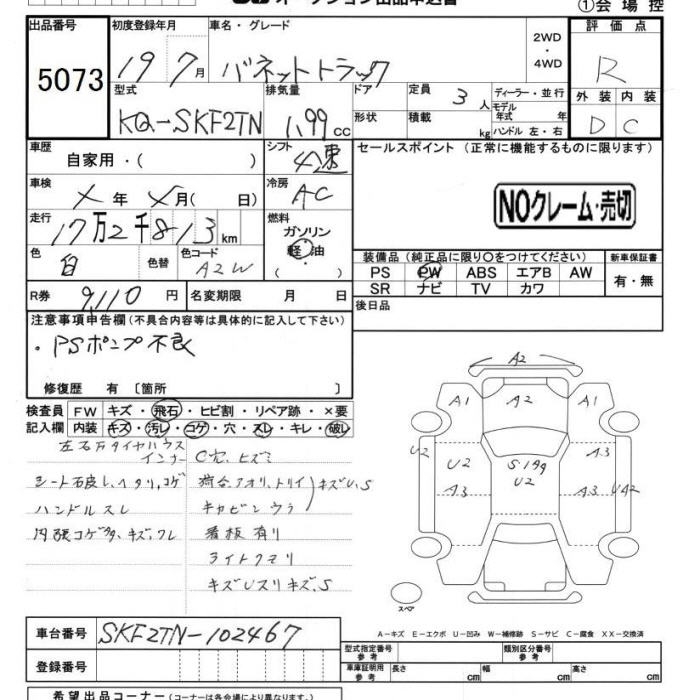 オークション出品申込書
①会場控
出品番号 初度登録年月 車名・グレード 2WD・4WD 評価点
5073 19 7月 バネットトラック R
型式 排気量 ドア 定員 3人 ディーラー・並行 外装 内装
KQ-SKF2TN 1.99cc 形状 積載 kg モデル年式 年式 ハンドル 左・右 D C
車歴 自家用・( ) シフト 4速 セールスポイント(正常に機能するものに限ります)
車検 メ年メ月(日) 冷房 AC NOクレーム・売切
走行 17万2千813km 燃料 ガソリン 軽油
色 白 色替 色コード A2W
装備品(純正品に限り〇をつけてください) 新車保証書
PS PW ABS エアB AW 有・無
SR ナビ TV カワ
R券 9,110円 名変期限 月 日 後日品
注意事項申告欄(不具合内容等は具体的に記入して下さい)
・PSポンプ不良
修復歴 有〔箇所 〕
検査員記入欄 FW キズ・飛石・ヒビ割・リペア跡・×要
内装 キズ・汚レ・コゲ・穴・スレ・キレ・破レ
左右方タイヤハウス
インナー C穴、ヒズミ
荷台、アオリ、トリイ キズU、S
ハンドルスレ キャビンウラ
看板有り
ライトクモリ
キズUスリキズ、S
A2
A1 A2 A1
U2 U2 S・199 A3
A3 U2 A3 UA2
スペア
A-キズ E-エクボ U-凹み W-補修跡 S-サビ C-腐食 XX-交換済
車台番号 SKF2TN-102467
型式指定番号 参考 類別区分番号 参考
登録番号 車庫証明用 参考 長さ cm 幅 cm 高さ cm
希望出品コーナー(コーナーは各会場により異なります。)